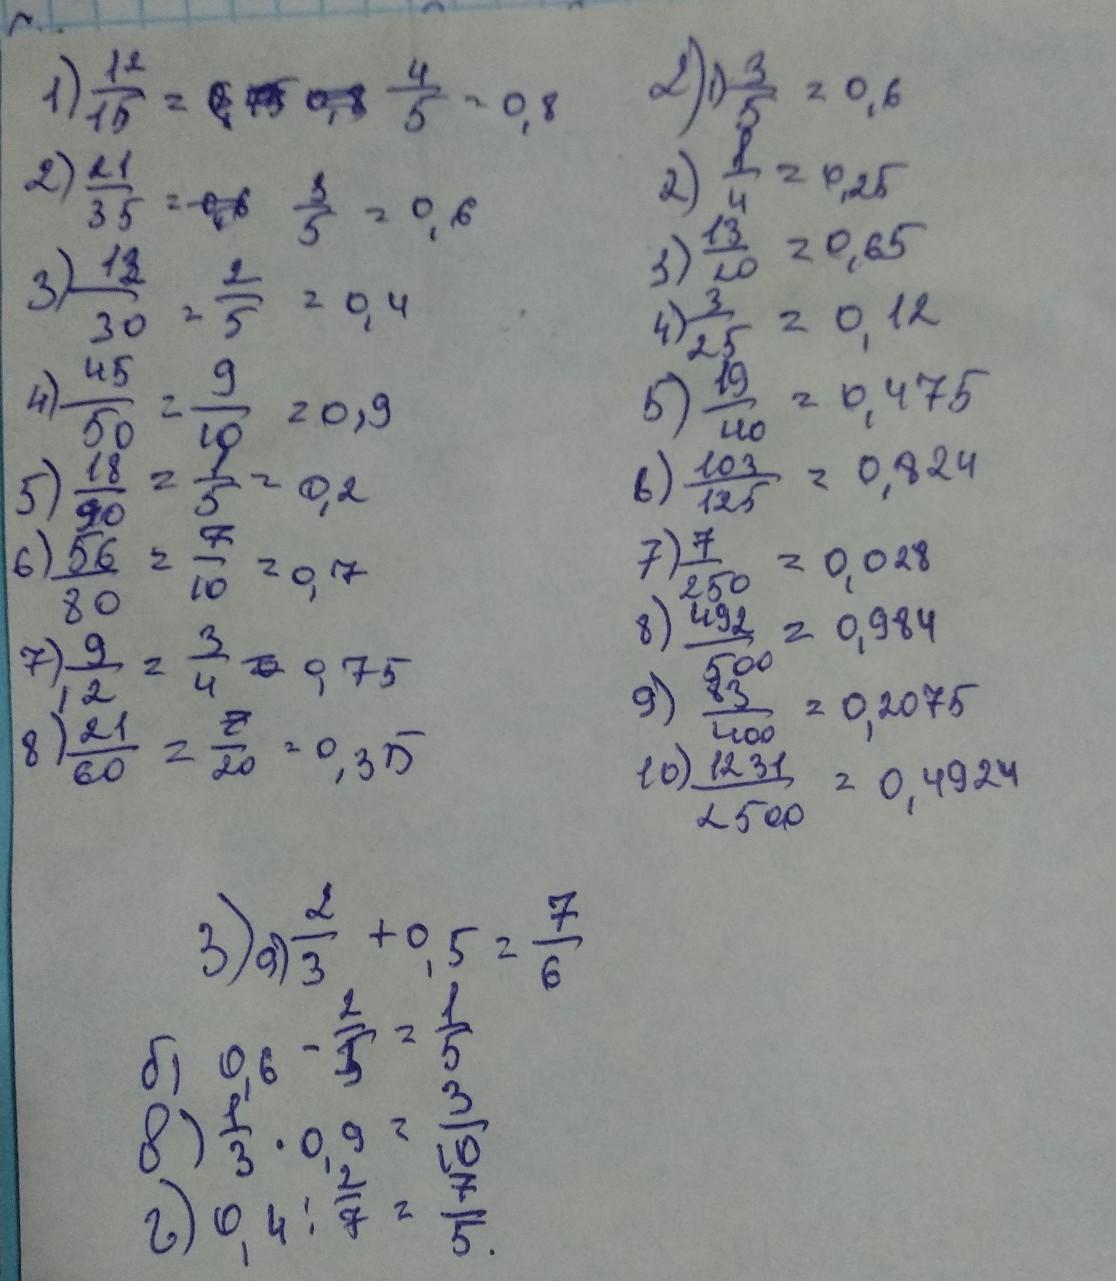 1) 12/15 = 4/5 = 0,8
2) 21/35 = 3/5 = 0,6
3) 12/30 = 2/5 = 0,4
4) 45/50 = 9/10 = 0,9
5) 18/90 = 1/5 = 0,2
6) 56/80 = 7/10 = 0,7
7) 9/12 = 3/4 = 0,75
8) 21/60 = 7/20 = 0,35
2) 1) 3/5 = 0,6
2) 1/4 = 0,25
3) 13/20 = 0,65
4) 3/25 = 0,12
5) 19/40 = 0,475
6) 103/125 = 0,824
7) 7/250 = 0,028
8) 492/500 = 0,984
9) 83/400 = 0,2075
10) 1231/2500 = 0,4924
3) а) 2/3 + 0,5 = 7/6
б) 0,6 - 2/5 = 1/5
в) 1/3 · 0,9 = 3/10
г) 0,4 : 2/7 = 7/5.